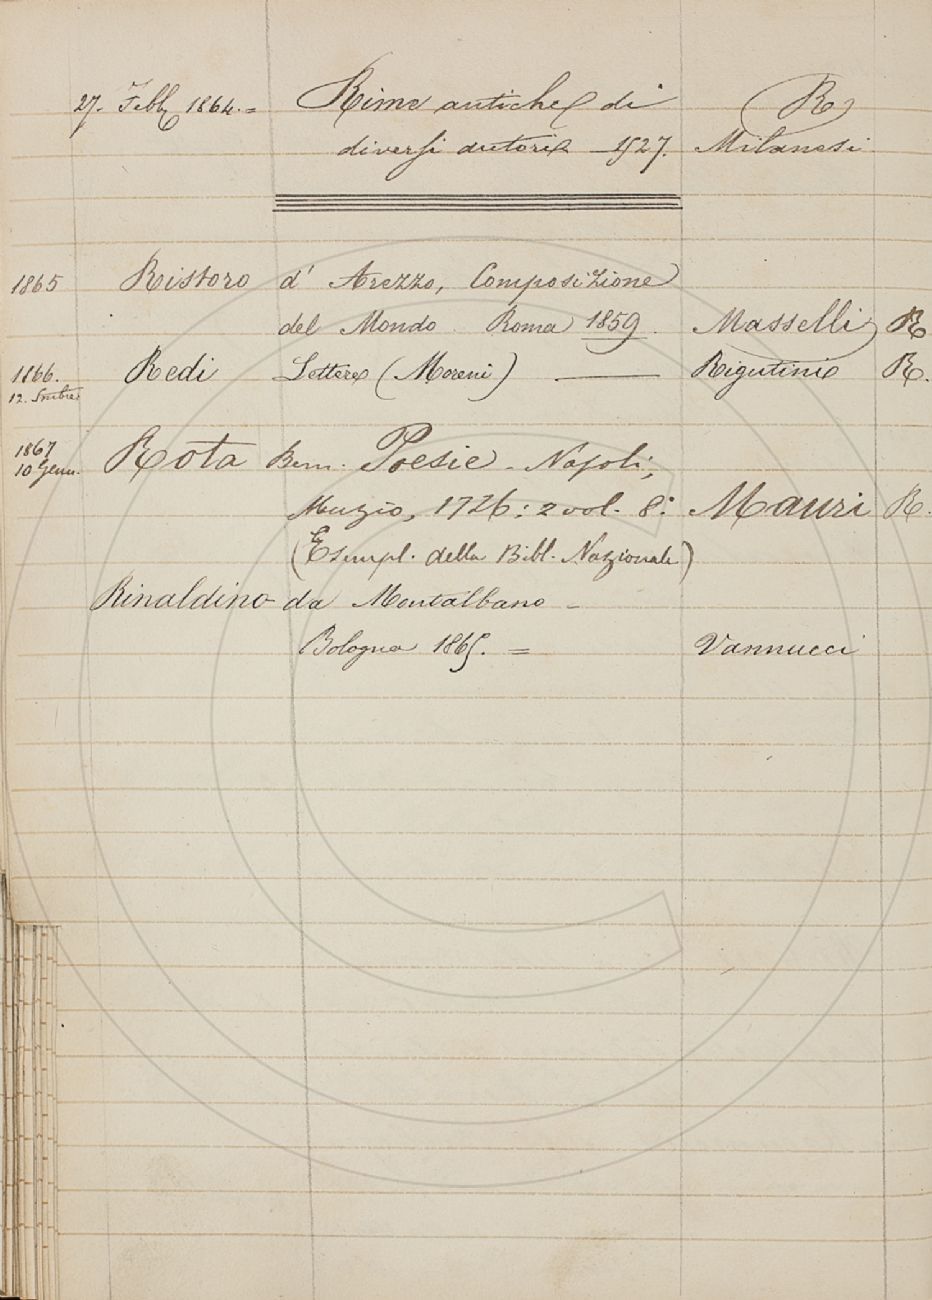 27. Febb. 1864. = Rime antiche di (R)
diversi autori - 1527. Milanesi
1865 Ristoro d' Arezzo, Composizione
del Mondo Roma 1859. Masselli R
1866. Redi Lettere (Moreni) — Rigutini R.
12.
1867 Rota Bern. Poesie - Napoli,
10 Genn.
Muzio, 1726: 2 vol. 8: Mauri R.
(Esempl. della Bibl. Nazionale)
Rinaldino da Montalbano -
Bologna 1865. = Vannucci